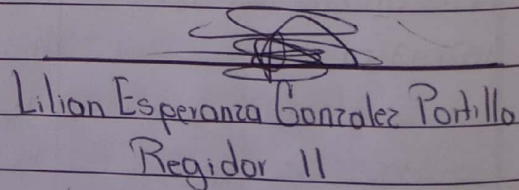 Lilian Esperanza Gonzalez Portillo
Regidor II